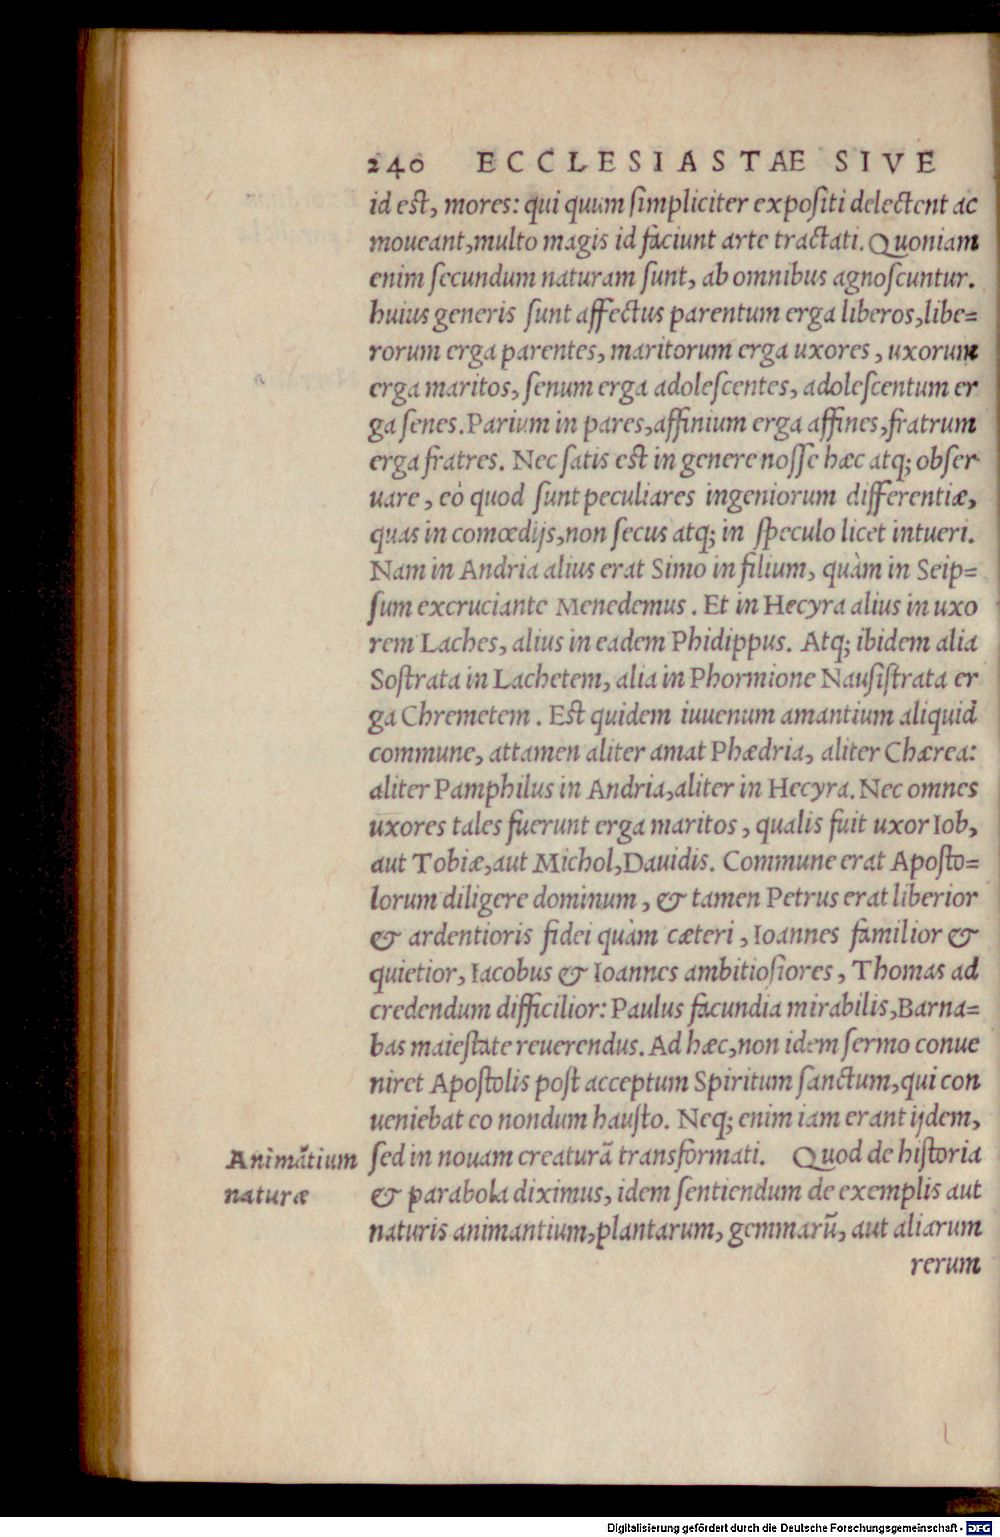 240 ECCLESIASTAE SIVE
id est, mores: qui quum simpliciter expositi delectent ac
moueant, multo magis id faciunt arte tractati. Quoniam
enim secundum naturam sunt, ab omnibus agnoscuntur.
huius generis sunt affectus parentum erga liberos, libe=
rorum erga parentes, maritorum erga uxores, uxorum
erga maritos, senum erga adolescentes, adolescentum er
ga senes. Parium in pares, affinium erga affines, fratrum
erga fratres. Nec satis est in genere nosse hæc atq; obser
uare, eò quod sunt peculiares ingeniorum differentiæ,
quas in comœdijs, non secus atq; in speculo licet intueri.
Nam in Andria alius erat Simo in filium, quàm in Seip=
sum excruciante Menedemus. Et in Hecyra alius in uxo
rem Laches, alius in eadem Phidippus. Atq; ibidem alia
Sostrata in Lachetem, alia in Phormione Nausistrata er
ga Chremetem. Est quidem iuuenum amantium aliquid
commune, attamen aliter amat Phædria, aliter Chærea:
aliter Pamphilus in Andria, aliter in Hecyra. Nec omnes
uxores tales fuerunt erga maritos, qualis fuit uxor Iob,
aut Tobiæ, aut Michol, Dauidis. Commune erat Aposto=
lorum diligere dominum, & tamen Petrus erat liberior
& ardentioris fidei quàm cæteri, Ioannes familior &
quietior, Iacobus & Ioannes ambitiosiores, Thomas ad
credendum difficilior: Paulus facundia mirabilis, Barna=
bas maiestate reuerendus. Ad hæc, non idem sermo conue
niret Apostolis post acceptum Spiritum sanctum, qui con
ueniebat eo nondum hausto. Neq; enim iam erant ijdem,
sed in nouam creaturã transformati. Quod de historia
& parabola diximus, idem sentiendum de exemplis aut
naturis animantium, plantarum, gemmarũ, aut aliarum
rerum
Animãtium
naturæ
Digitalisierung gefördert durch die Deutsche Forschungsgemeinschaft - DFG